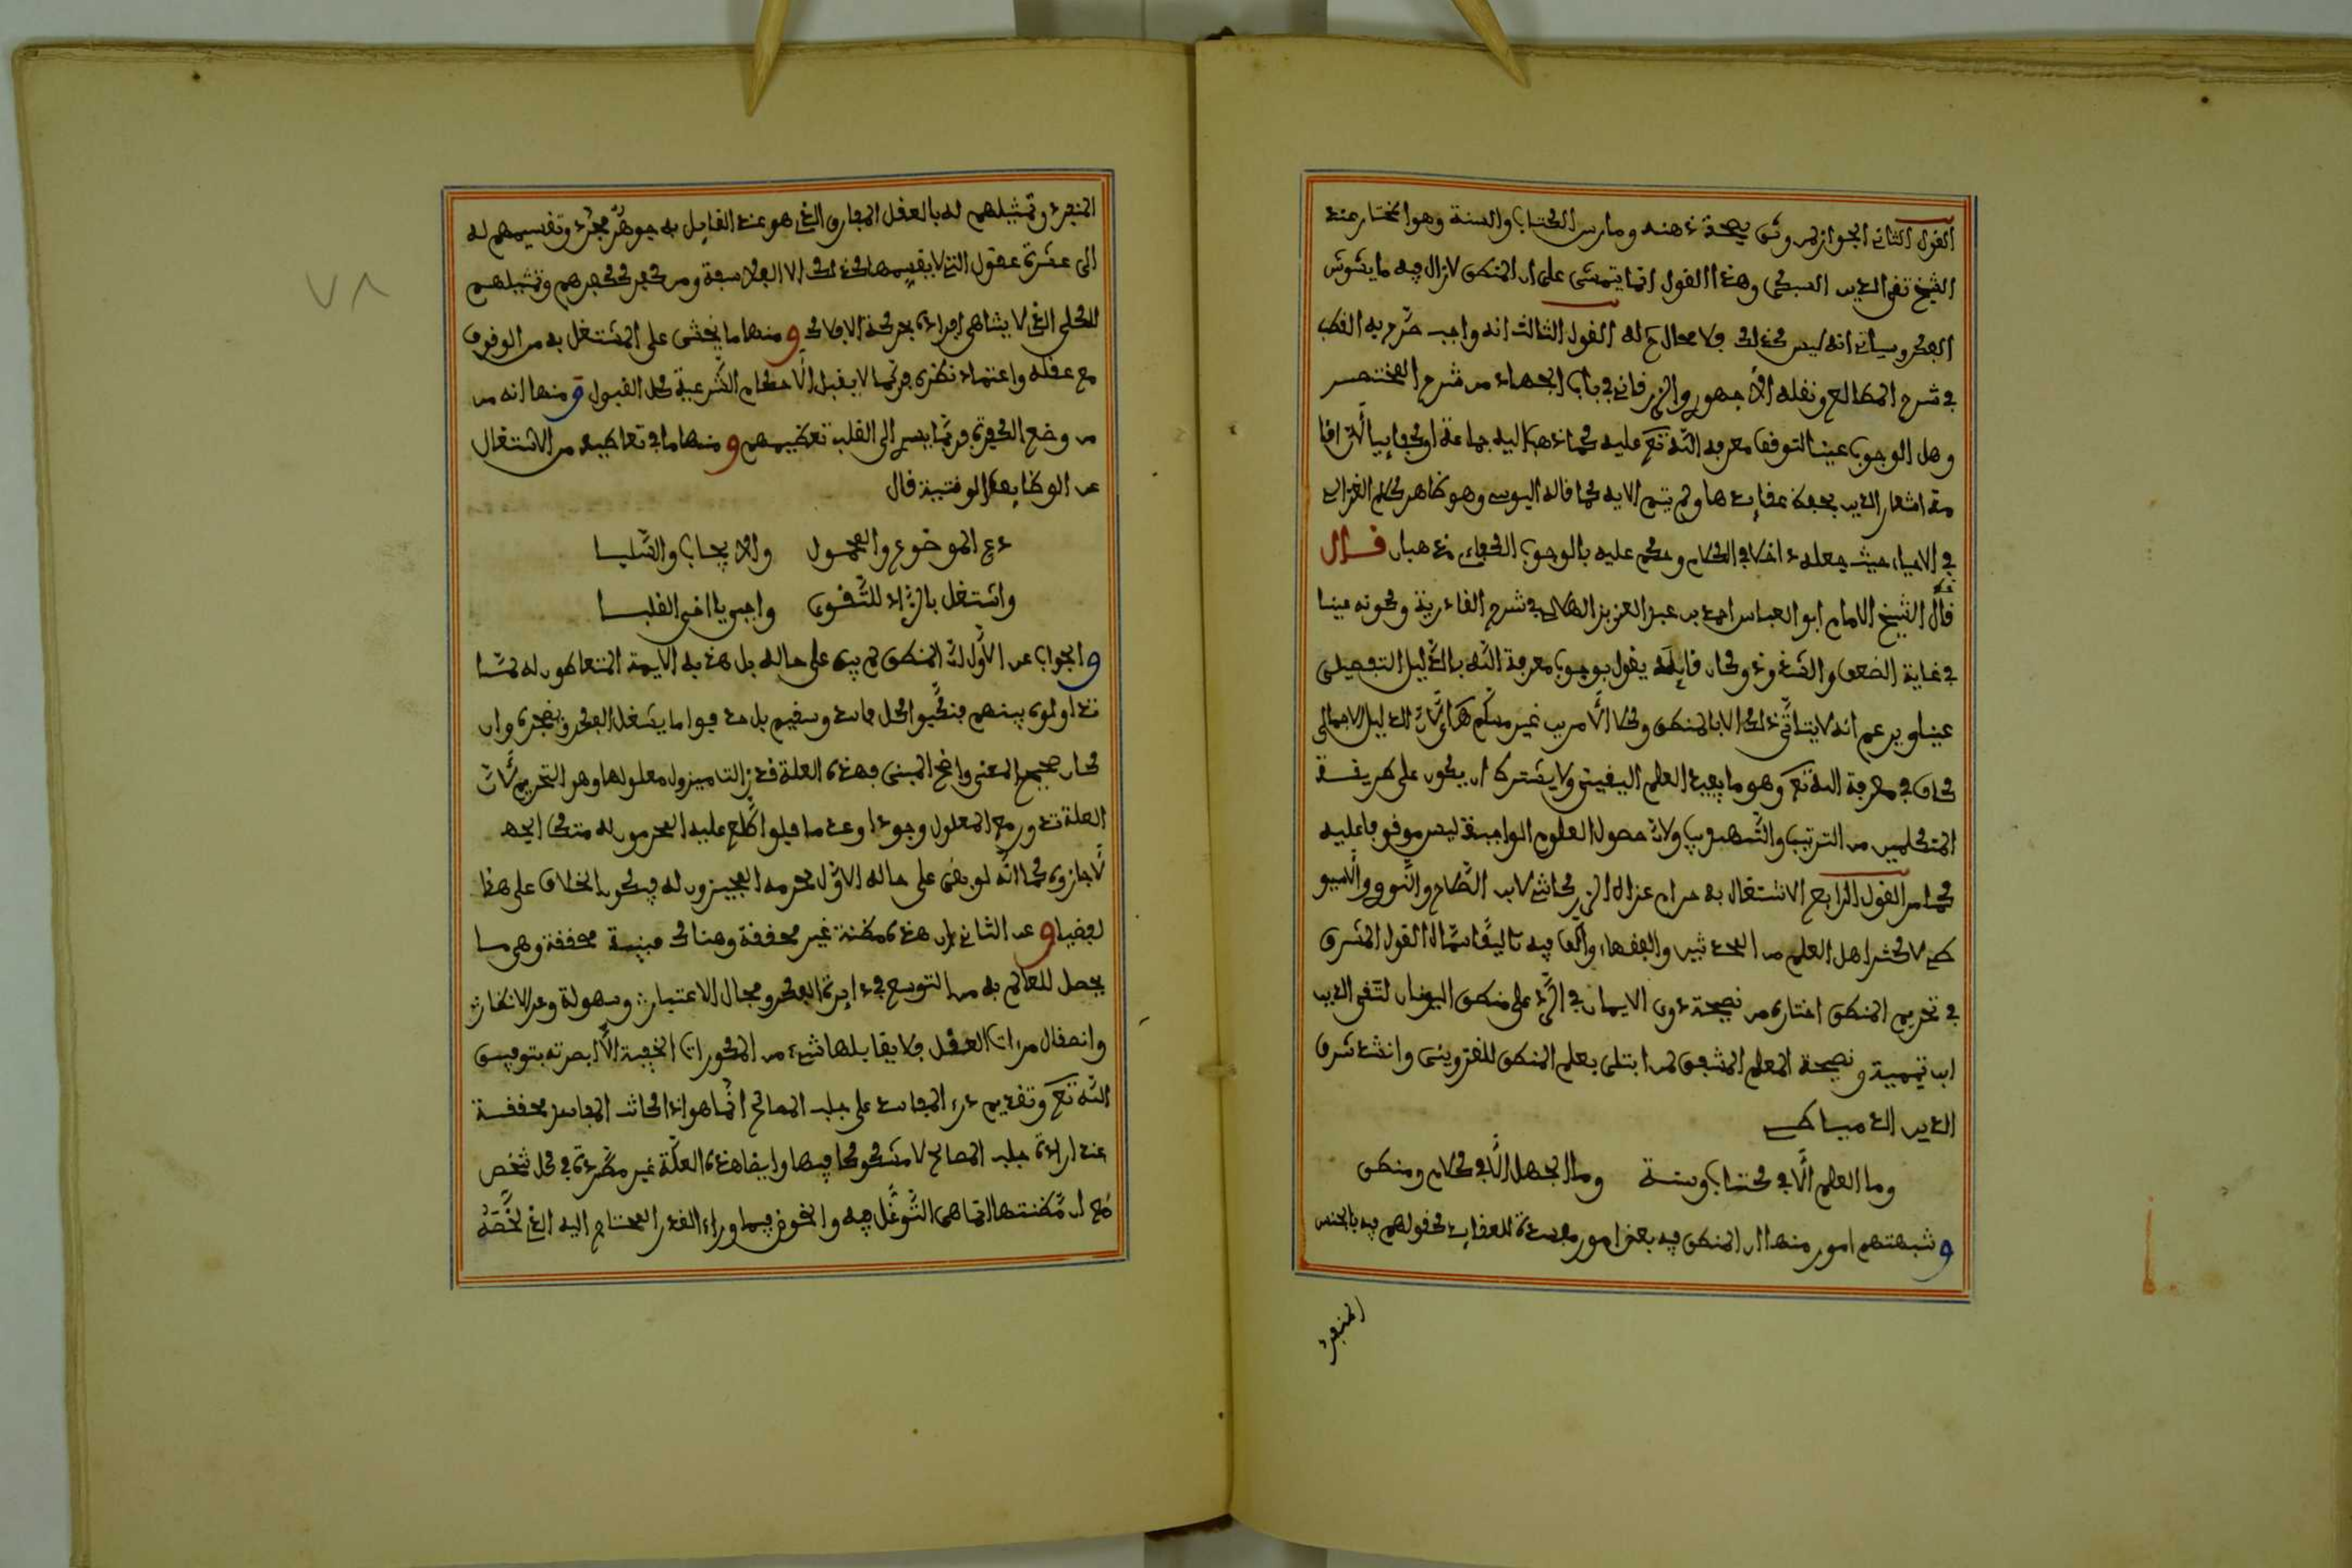 القول الثاني الجواز لمن وثق بصحة ذهنه ومارس الكتاب والسنة وهو المختار عند
الشيخ تقي الدين السبكي وهذا القول انما يتمشى على ان المنطق لازال فيه ما يشوش
الفكر وسياتي انه ليس كذلك فلا محال ح له القول الثالث انه واجب صرّح به القطب
في شرح المطالع ونقله الاجهوري والزرقاني في باب الجهاد من شرح المختصر
وهل الوجوب عينا لتوقف معرفة اللّه تع عليه كما ذهب اليه جماعة او كفايياً لان اقا
مة اشعار الدين بحفظ عقايدها ولم يتم الا به كما قاله اليوسي وهو ظاهر كلام الغزالي
في الاحياء حيث جعله داخلا في الكلام وحكم عليه بالوجوب الكفاءي مذهبان قال
قال الشيخ الامام ابو العباس احمد بن عبد العزيز الهلالي في شرح القادرية وكونه عينا
في غاية الضعف والشذوذ وكان قايله يقول بوجوب معرفة اللّه بالدّليل التفصيلي
عينا ويزعم انه لا يتأتّى ذلك الا بالمنطق وكلا الأمرين غير مسلّم لأنّ الدليل الاجمالي
كاف في معرفة الله تع وهو ما يفيد العلم اليقيني ولا يشترط ان يكون على طريقة
المتكلمين من الترتيب والتّهذيب ولانّ حصول العلوم الواجبة ليس موقوفا عليه
كما مر القول الرابع الاشتغال به حرام عزاه الزركاشي لابن الصّلاح والنّووي والسيو
طي لاكثر اهل العلم من المحدثين والفقهاء والّف فيه تاليفًا سمّاه القول المشرق
في تحريم المنطق اختاره من نصيحة ذوي الايمان في الرّد على منطق اليونان لتقي الدين
ابن تيمية ونصيحة المعلم المشفق لمن ابتلى بعلم المنطق للقزويني وانشد شرف
الدين الدمياطي
وما العلم الّا في كتاب وسنة وما الجهل الّا في كلام ومنطق
وشبهتهم امور منها ان المنطق فيه بعض امور مفسدة للعقايد كقولهم فيه بالجنس
المنفرد
المنفرد وتمثيلهم له بالعقل المفارق الذي هو عند القايل به جوهرٌ مجرّد وتقسيمهم له
الى عشرة عقول التي لا يقسمها كذلك الا الفلاسفة ومن كفر كفكفرهم وتمثيلهم
للكلي الذي لا يتناهى افراده بحركة الافلاك ومنها ما يخشى على المشتغل به من الوقوف
مع عقله واعتماد نظره فربّما لا يقبل الأحكام الشّرعية كل القبول ومنها انه من
من وضع الكفرة فربّما يسري الى القلب تعظيمهم ومنها ما في تعاطيه من الاشتغال
عن الوظايف الوقتية قال
دع الموضوع والمحمول والايجاب والسّلبا
واشتغل بالزّاد للتّقوى واجب يا اخي القلبا
والجواب عن الأوّل انّ المنطق لم يبق على حاله بل هذبه الايمة المتعاطون له لمّا
تداولوه بينهم فنحّيوا كل فاسد وسقيم بل حذفوا ما يشغل الفكر ويضجره وان
كان صحيح المعنى واضح المبنى فبهذه العلة قد زالت فيزول معلولها وهو التحريم لأنّ
العلة تدور مع المعلول وجودا وعدما فلو اطّلع عليه المحرمون له منقحا ايضا
لأجازوه كما انّه لو بقى على حاله الاوّل لحرمه المجيزون له فيكون الخلاف على هذا
لفظيا وعن الثاني بان هذه مظنة غير محققة وهناك مبنية محققة وهي ما
يحصل للعالم به من التوسع في دايرة الفكر ومجال الاعتبار وسهولة وعر الانظار
وانصقال مرءات العقل فلا يقابلها شيء من المحذورات الخفية الّا ابصرته بتوفيق
اللّه تع وتقديم درء المفاسد على جلب المصالح انّما هو اذا كانت المفاسد محققة
عند ارادة جلب المصالح لا مشكوكا فيها وايضا هذه العلّة غير مطّردة في كل شخص
مع ان مَّظنتها انما هي التَّوغّل فيه والخوض فيما وراء القدر المحتاج اليه الذي لخّصه
٧٨